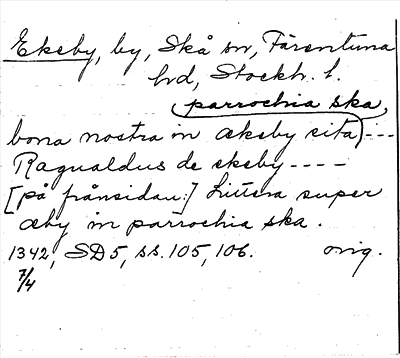 Ekeby, by, Skå sn, Färentuna
hd, Stockh. l.
parrochia ska,
bona nostra in ækeby sita) ---
Ragualdus de ekeby ----
[på frånsidan:] Littera super
æby in parrochia ska.
1342, SD 5, ss. 105, 106. orig.
7/4